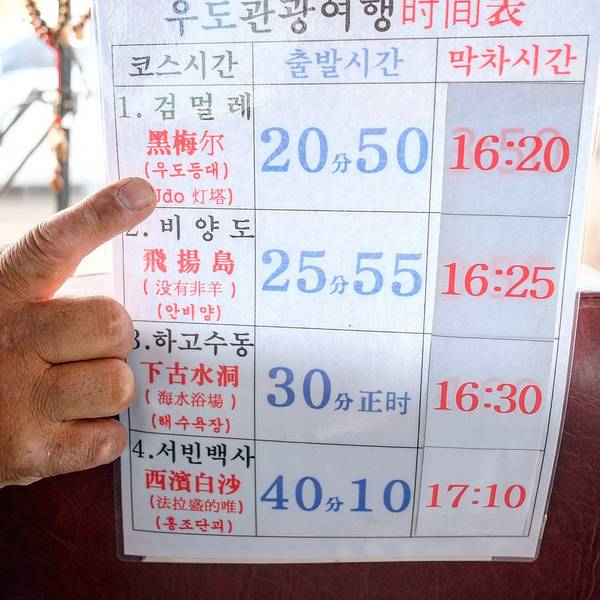 우도관광여행时间表
코스시간 출발시간 막차시간
1.검멀레
黑梅尔
(우도등대)
Jdo 灯塔)
20分50 16:20
2.비양도
飛揚島
(没有非羊)
(안비양)
25分55 16:25
3.하고수동
下古水洞
(海水浴場)
(해수욕장)
30分正时 16:30
4.서빈백사
西濱白沙
(法拉盛的唯)
(홍조단괴)
40分10 17:10